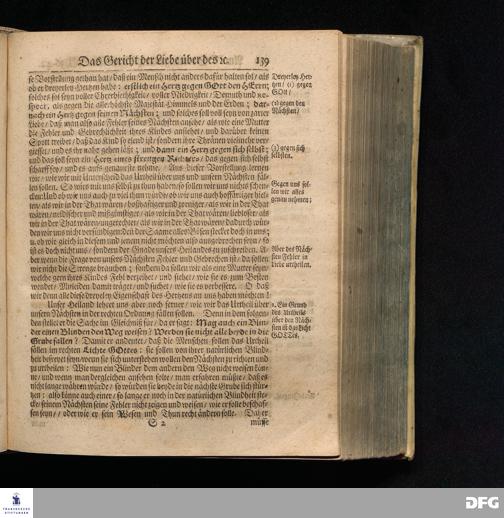 Das Gericht der Liebe über des ꝛc. 139
se Vorstellung gethan hat/ daß ein Mensch nicht anders dafür halten sol/ als
ob er dreyerley Hertzen habe: erstlich ein Hertz gegen GOtt den HErrn;
solches sol seyn voller Ehrerbietigkeit/ voller Niedrigkeit/ Demuth und re-
spect, als gegen die allerhöchste Majestät Himmels und der Erden; dar-
nach ein Hertz gegen seinen Nächsten; und solches soll voll seyn von zarter
Liebe/ daß man also alle Fehler seines Nächsten ansehe/ als wie eine Mutter
die Fehler und Gebrechlichkeit ihres Kindes ansiehet/ und darüber keinen
Spott treibet/ daß das Kind so elend ist/ sondern ihre Thränen vielmehr ver-
giesset/ und es ihr nahe gehen läst; und dann ein Hertz gegen sich selbst;
und das soll seyn ein Hertz eines strengen Richters/ das gegen sich selbst
scharff sey/ und es aufs genaueste nehme. Aus dieser Vorstellung lernen
wir/ wie wir mit Unterscheid das Urtheil über uns und unsern Nächsten fäl-
len sollen. So wirs mit uns selbst zu thun haben/ so sollen wir uns nichts schen-
cken:
wären/ als wir in der That wären/ boßhafftiger und zorniger/ als wir in der That
wären/ neidischer und mißgünstiger/ als wir in der That wären/ liebloser/ als
wir in der That wären/ ungerechter/ als wir in der That wären/ dadurch wür-
den wir uns nicht versündigen/ den der Saame alles Bösen stecket doch in uns;
u. ob wir gleich in diesem und jenem nicht möchten also ausgebrochen seyn/ so
ist es doch nicht uns/ sondern der Gnade unsers Heilandes zu zuschreiben. A-
ber wenn die Frage von unsers Nächsten Fehler und Gebrechen ist/ da sollen
wir nicht die Strenge brauchen; sondern da sollen wir als eine Mutter seyn/
welche gern ihres Kindes Fehl verzeihet/ und siehet/ wie sie es zum Besten
wendet/ Mitleiden damit träget/ und suchet/ wie sie es verbessere. O daß
wir denn alle diese dreyerley Eigenschafft des Hertzens an uns haben möchten!
Unser Heiland lehret uns aber noch ferner/ wie wir das Urtheil über
unsern Nächsten in der rechten Ordnung fällen sollen. Denn in dem folgen-
den stellet er die Sache im Gleichniß für/ da er saget: Mag auch ein Blin-
der einen Blinden den Weg weisen? Werden sie nicht alle beyde in die
Grube fallen? Damit er andeutet/ daß die Menschen sollen das Urtheil
fällen im rechten Lichte GOttes; sie sollen von ihrer natürlichen Blind-
heit befreyet seyn/ wenn sie sich unterstehen wollen den Nächsten zu richten und
zu urtheilen: Wie nun ein Blinder dem andern den Weg nicht weisen kön-
ne/ und wenn man dergleichen ansehen solte/ man erfahren müste/ daß es
nicht lange währen würde/ so würden sie beyde in die nächste Grube sich stür-
tzen; also könne auch einer/ so lange er noch in der natürlichen Blindheit ste-
cke/ seinem Nächsten seine Fehler nicht zeigen und weisen/ wie er solle beschaf-
fen seyn/ oder wie er sein Wesen und Thun recht ändern solle. Daher
S 2 müsse
Dreyerley Her-
tzen/ (1) gegen
GOtt/
(2) gegen den
Nächsten/
(3) gegen sich
selbsten.
Gegen uns sol-
len wir alles
genau nehmen;
Aber des Näch-
sten Fehler in
Liebe urtheilen.
2. Ein Grund
des Urtheils
über den Näch-
sten ist das Licht
GOTTes.
FRANCKESCHE
STIFTUNGEN
DFG